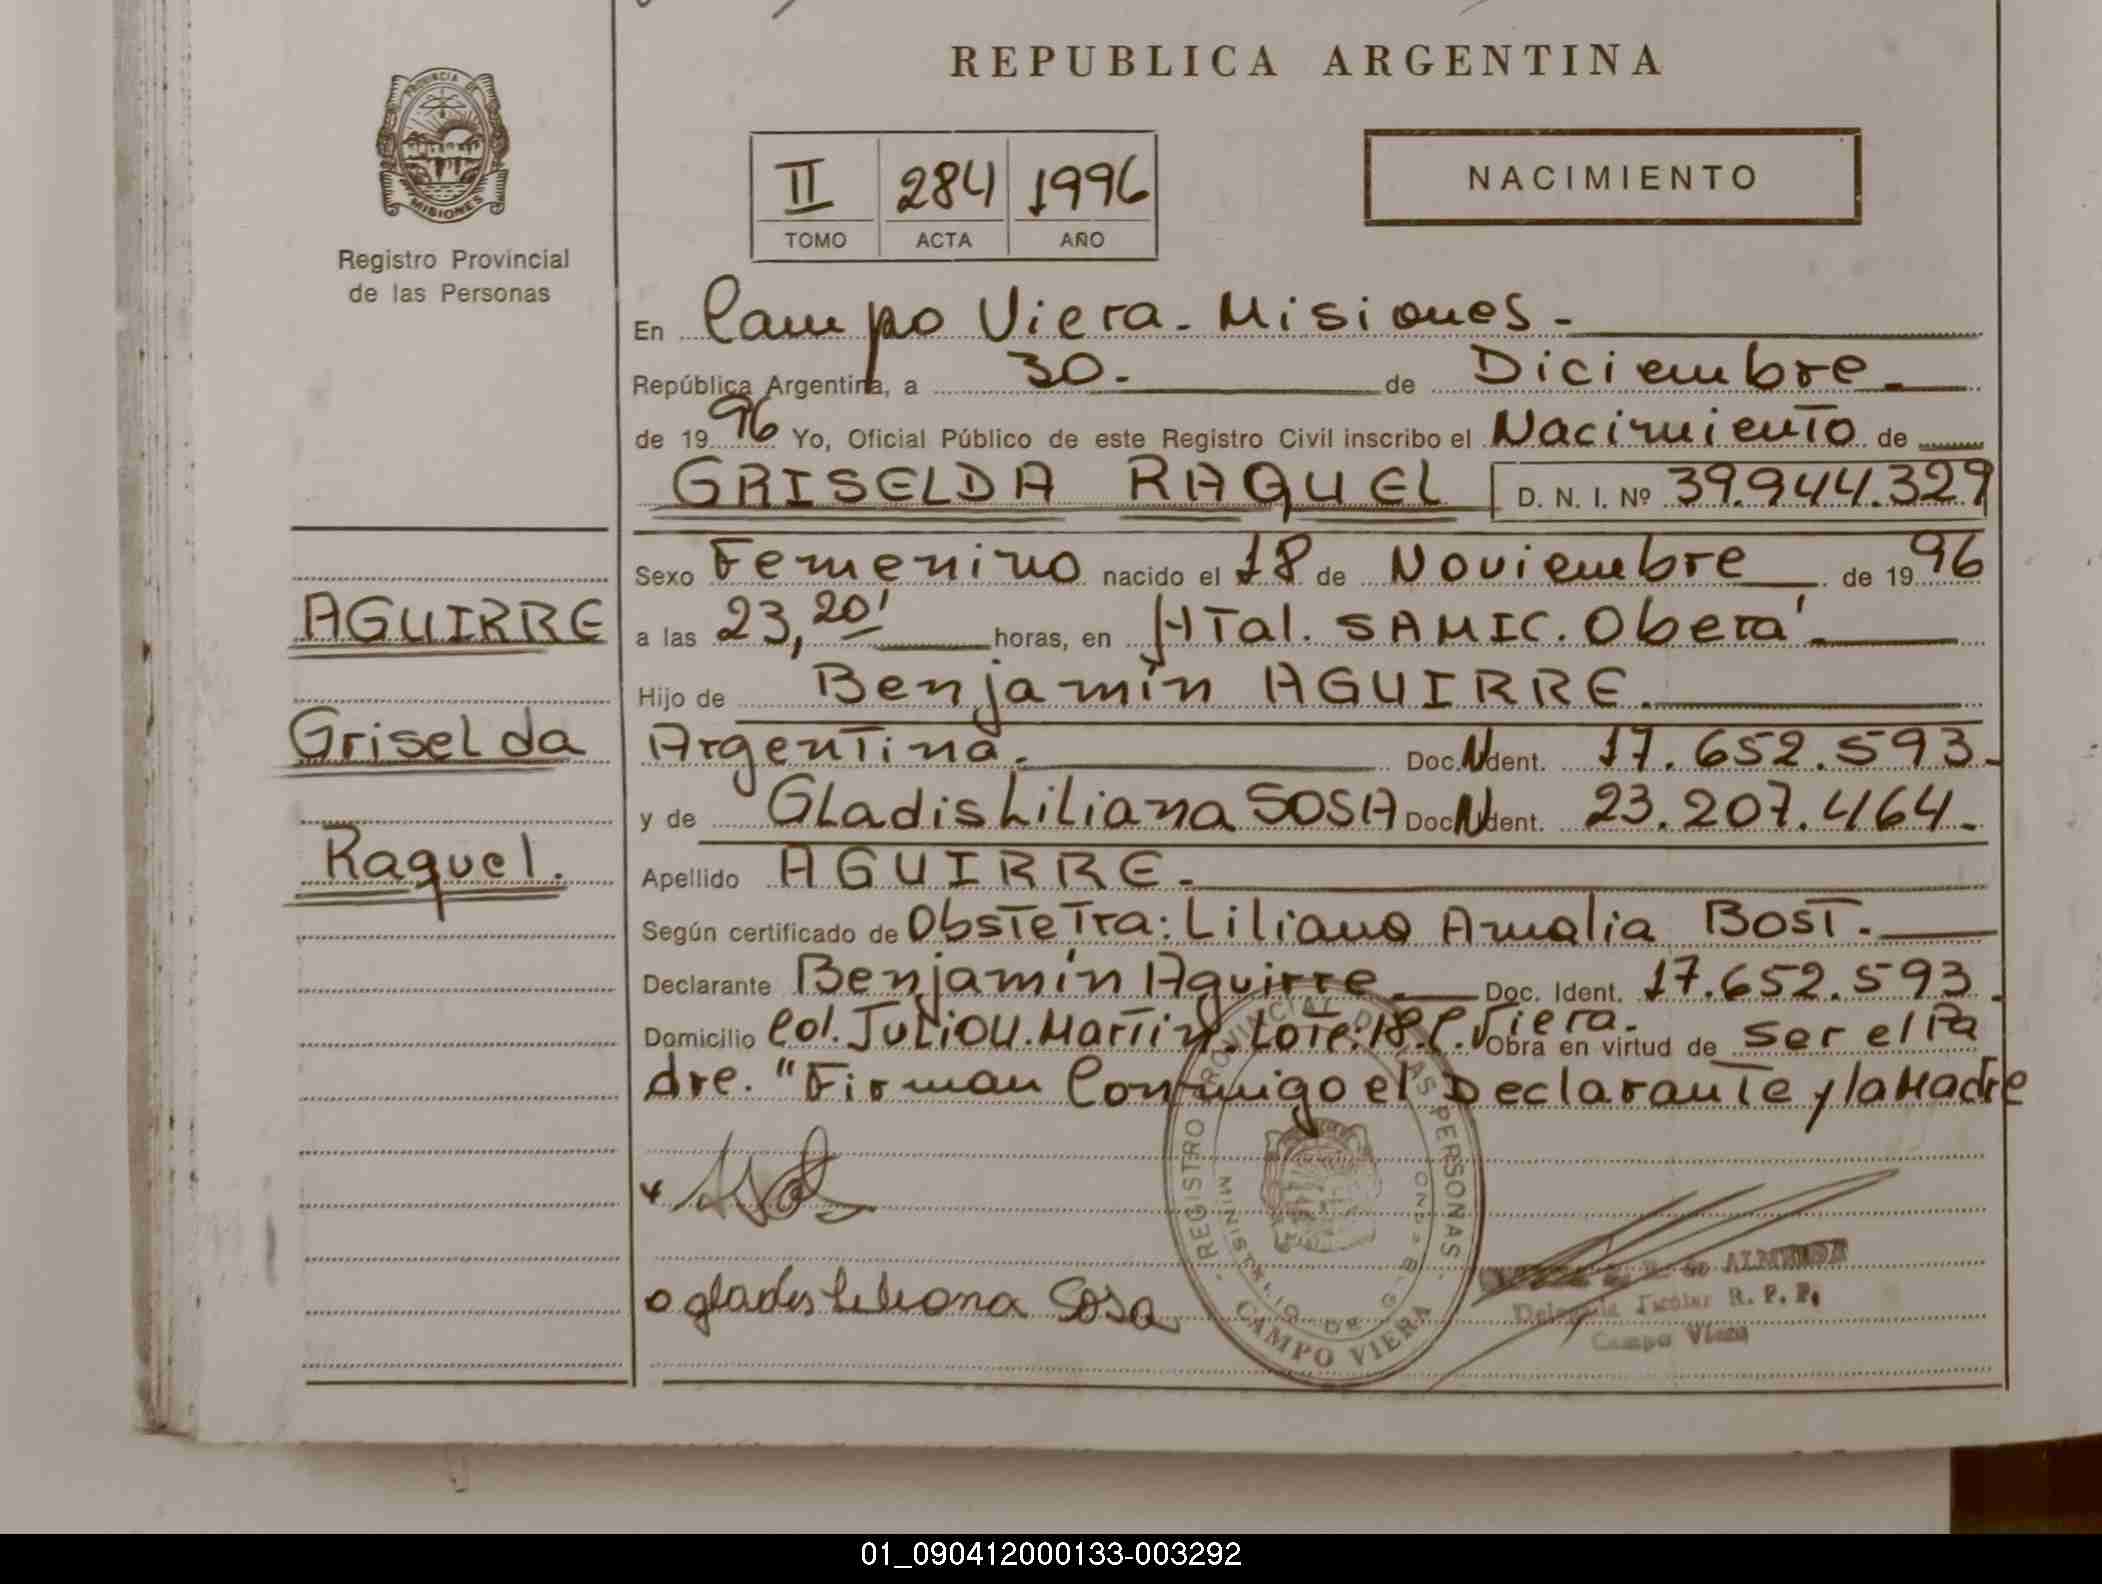 REPUBLICA ARGENTINA
PROVINCIA DE
MISIONES
Registro Provincial
de las Personas
II 284 1996
TOMO ACTA AÑO
NACIMIENTO
En Campo Viera - Misiones -
República Argentina, a 30. de Diciembre
de 1996 Yo, Oficial Público de este Registro Civil inscribo el Nacimiento de
GRISELDA RAQUEL D. N. I. Nº 39.944.329
Sexo Femenino nacido el 18 de Noviembre de 1996
a las 23,20' horas, en HTal. SAMIC. Oberá.
Hijo de Benjamín AGUIRRE.
Argentina. Doc. N Ident. 17.652.593.
y de Gladis Liliana SOSA Doc. N Ident. 23.207.464.
Apellido AGUIRRE.
Según certificado de Obstetra: Liliana Amalia BOST.
Declarante Benjamín Aguirre Doc. Ident. 17.652.593.
Domicilio Col. Julio U. Martin. Lote. 18. C. Viera. Obra en virtud de Ser el Pa
dre. "Firman Conmigo el Declarante y la Madre
AGUIRRE
Griselda
Raquel.
gladis liliana Sosa
REGISTRO PROVINCIAL DE LAS PERSONAS
CAMPO VIERA
de ALMEIDA
Delegada Titular R. P. P.
Campo Viera
01_090412000133-003292